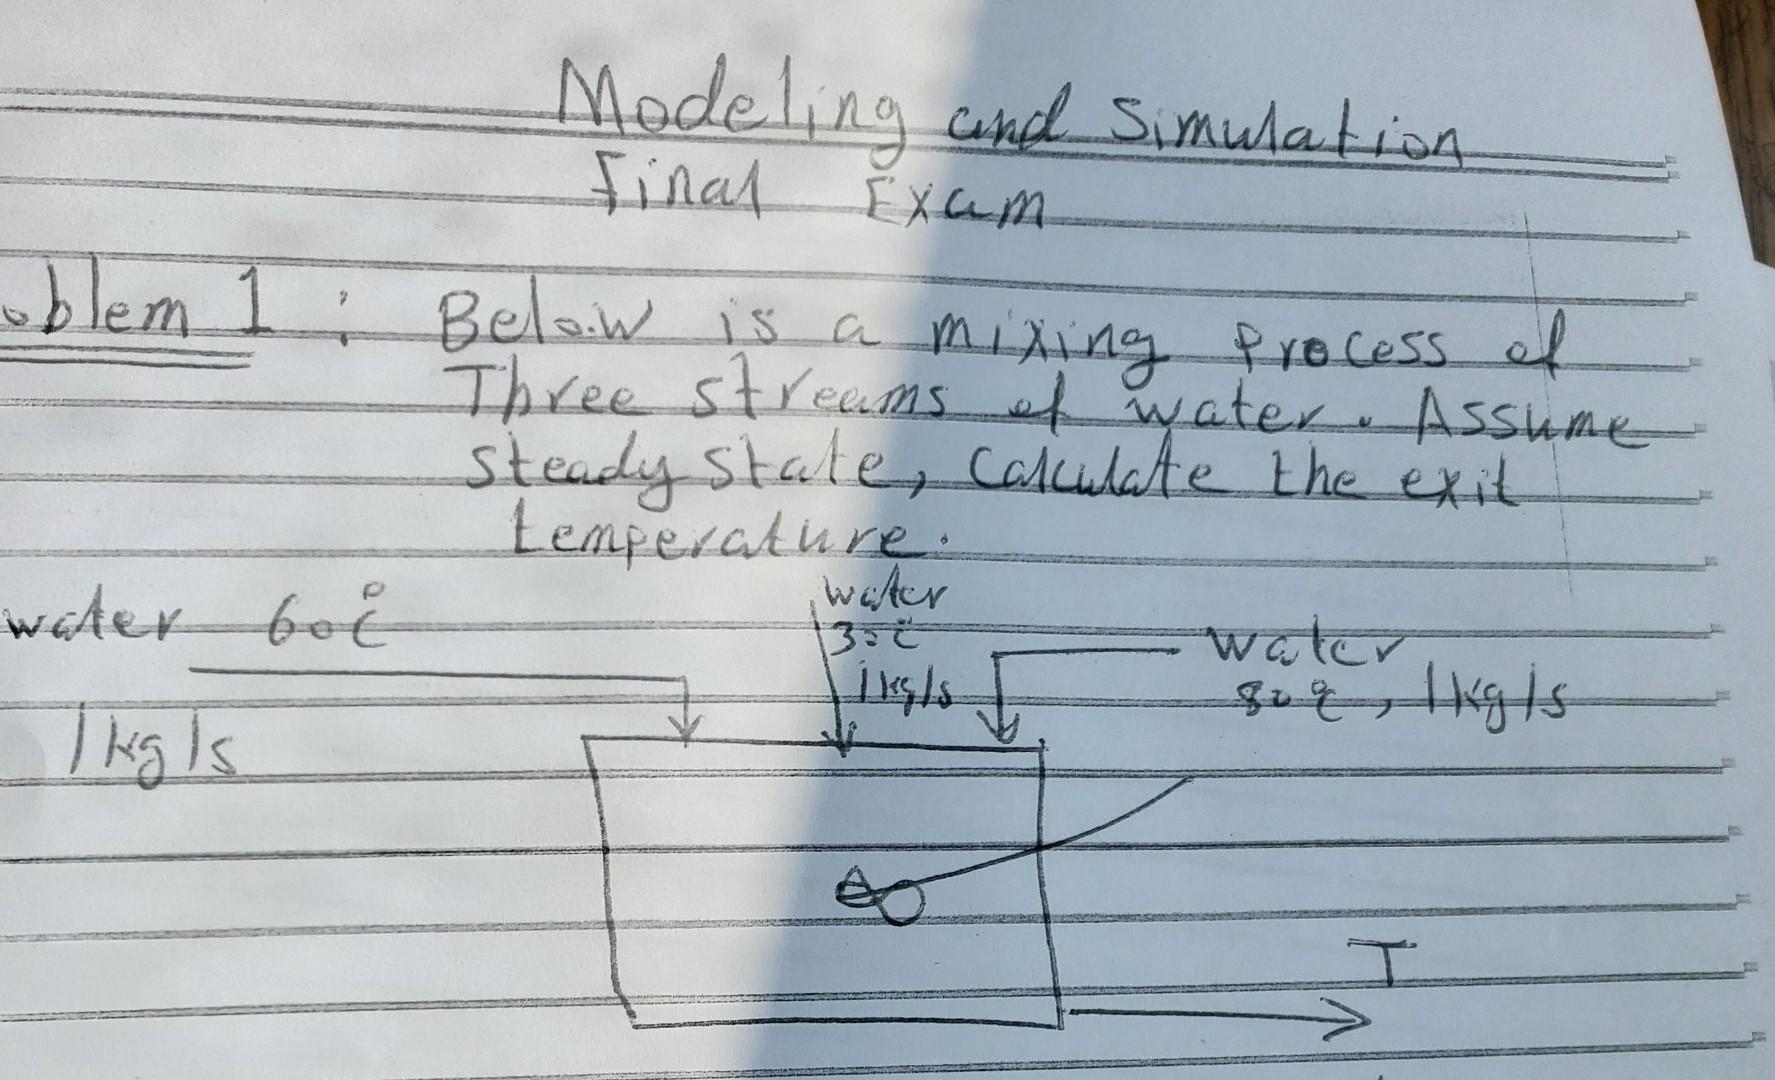 Modeling and Simulation
Final Exam
oblem 1 : Below is a mixing process of
Three streams of water. Assume
steady state, calculate the exit
temperature.
water 60°C
1 kg/s
water
30°C
1 kg/s
water
80°C, 1 kg/s
T